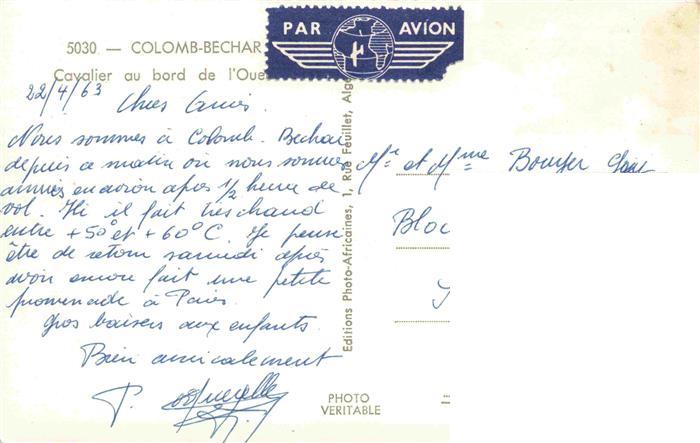 PAR AVION
5030 — COLOMB-BECHAR
Cavalier au bord de l'Oue
22/4/63
Chers Amis.
Nous sommes à Colomb. Bechar
depuis ce matin où nous sommes
arrivés en avion après 1/2 heure de
vol. Ici il fait très chaud
entre +50° et +60°C. Je pense
être de retour samedi après
avoir encore fait une petite
promenade à Paris.
Gros baisers aux enfants.
Bien amicalement
P.
Editions Photo-Africaines, 1, Rue Feuillet, Alge
Mr et Mme
Bloc
PHOTO
VERITABLE